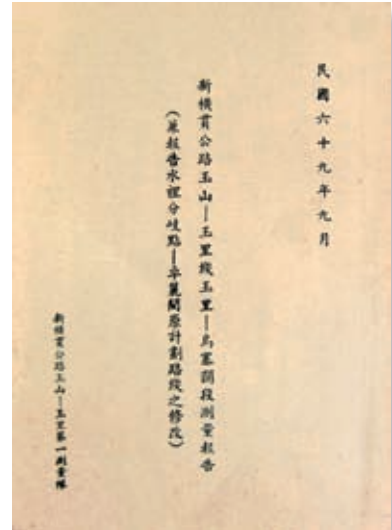 民國六十九年九月
新橫貫公路玉山——玉里線玉里——烏塞鬧段測量報告
(兼報告水裡分歧點——卒麓鬧原計劃路線之修改)
新橫貫公路玉山——玉里第一測量隊